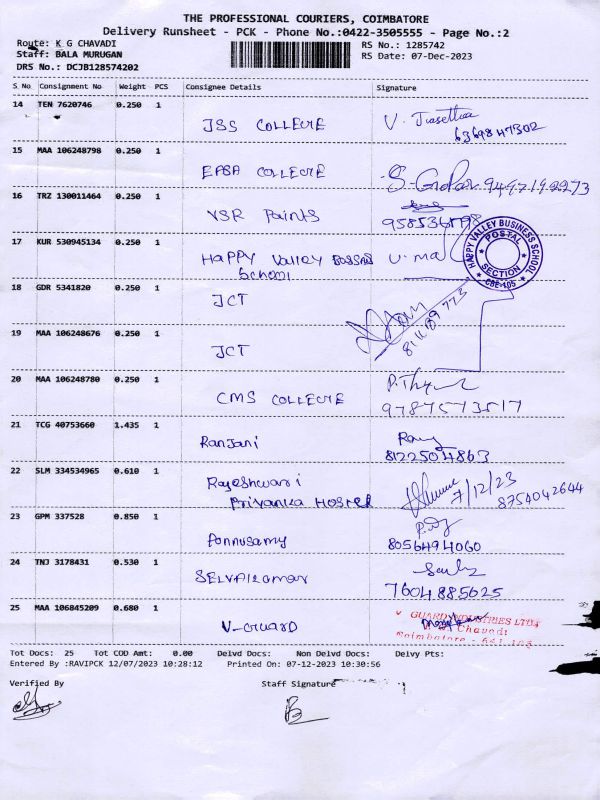 THE PROFESSIONAL COURIERS, COIMBATORE
Delivery Runsheet - PCK - Phone No.:0422-3505555 - Page No.:2
Route: K G CHAVADI RS No.: 1285742
Staff: BALA MURUGAN RS Date: 07-Dec-2023
DRS No.: DCJB128574202
S No Consignment No Weight PCS Consignee Details Signature
14 TEN 7620746 0.250 1 JSS COLLEGE
6369847302
15 MAA 106248798 0.250 1 EASA COLLEGE 9497192273
16 TRZ 130011464 0.250 1 VSR Paints
17 KUR 530945134 0.250 1 HAPPY Valley Bossness School U.ma
HAPPY VALLEY BUSINESS SCHOOL
POSTAL SECTION
CBE-105
18 GDR 5341820 0.250 1 JCT
19 MAA 106248676 0.250 1 JCT
20 MAA 106248780 0.250 1 CMS COLLEGE
9787573517
21 TCG 40753660 1.435 1 Ranjani
8122504863
22 SLM 334534965 0.610 1 Rajeshwari
Priyanka Hostel 7/12/23 8754042644
23 GPM 337528 0.850 1 Ponnusamy
8056494060
24 TNJ 3178431 0.530 1 SELVAKUMAR
7604885625
25 MAA 106845209 0.680 1 V-GUARD
GUARD INDUSTRIES LTD
Chavadi
Coimbatore
Tot Docs: 25 Tot COD Amt: 0.00 Delvd Docs: Non Delvd Docs: Delvy Pts:
Entered By :RAVIPCK 12/07/2023 10:28:12 Printed On: 07-12-2023 10:30:56
Verified By Staff Signature